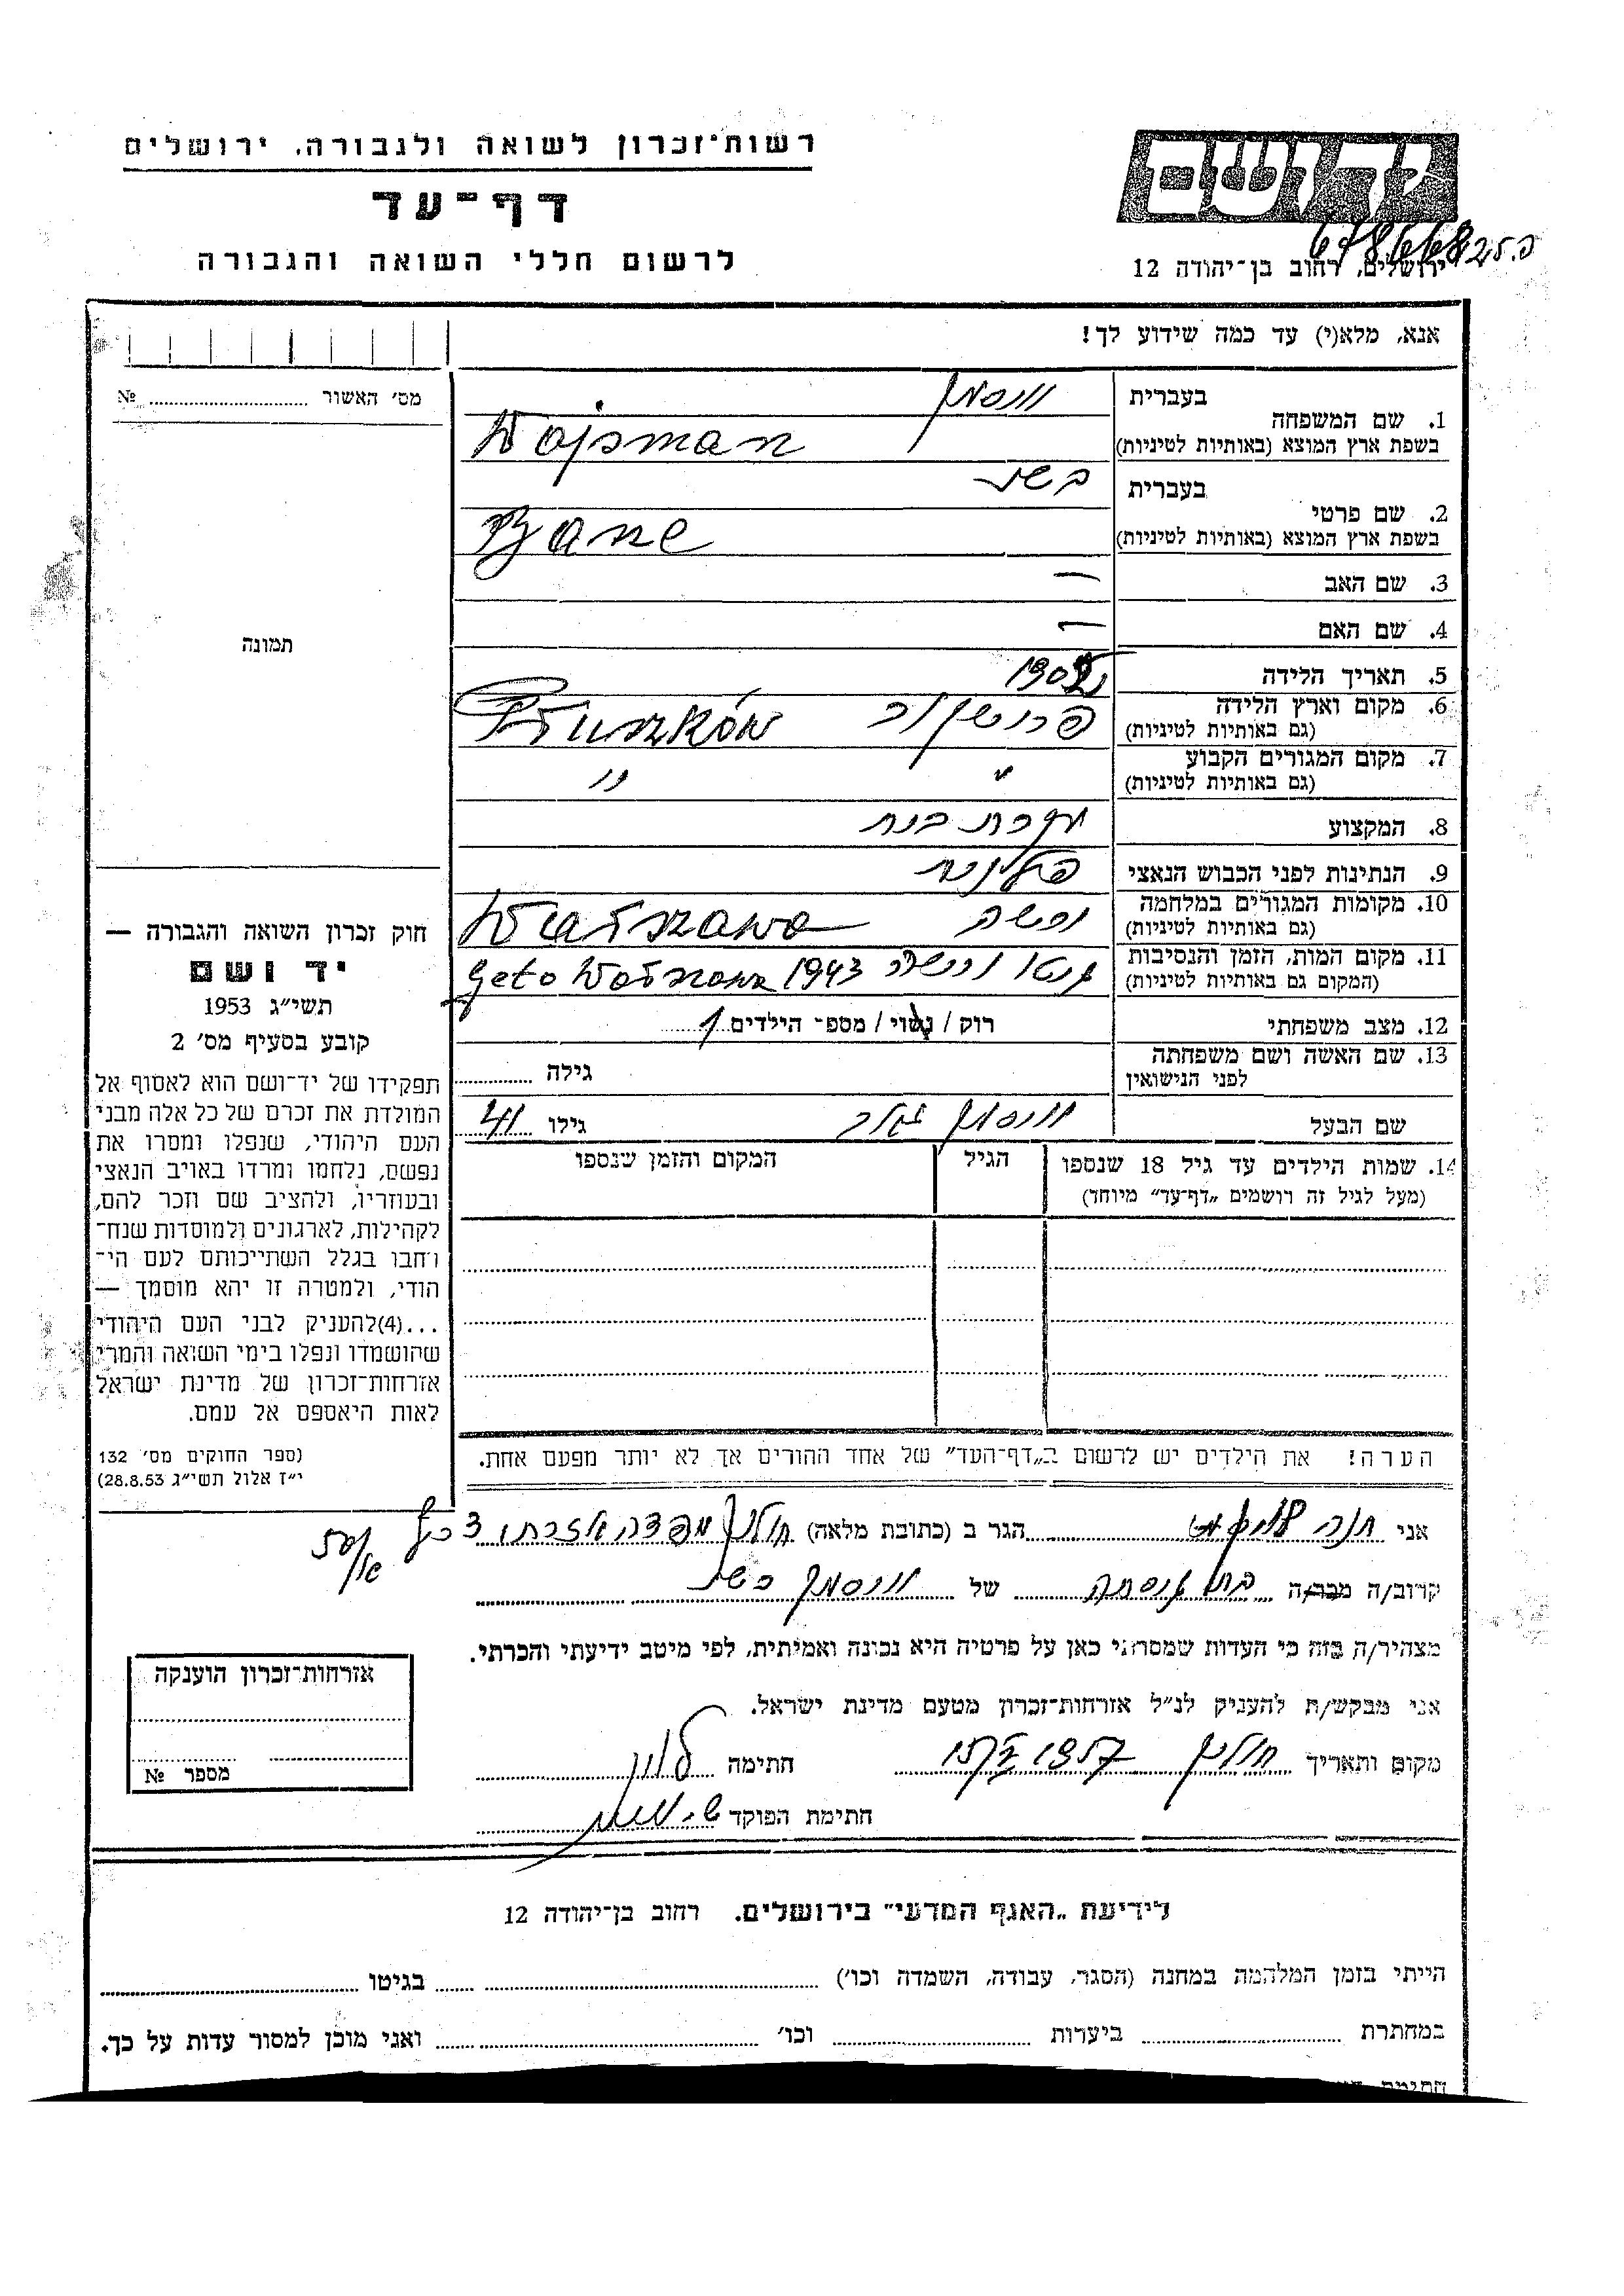 רשות־זכרון לשואה ולגבורה, ירושלים
דף־עד
לרשום חללי השואה והגבורה
ידושם
ירושלים, רחוב בן־יהודה 12
אנא, מלא(י) עד כמה שידוע לך!
מס׳ האשור № 
1. שם המשפחה
בעברית
וויסמן
בשפת ארץ המוצא (באותיות לטיניות)
Wajsman
2. שם פרטי
בעברית
בשפת ארץ המוצא (באותיות לטיניות)
3. שם האב —
4. שם האם —
5. תאריך הלידה
6. מקום וארץ הלידה
(גם באותיות לטיניות)
פרושקוב Pruszków
7. מקום המגורים הקבוע
(גם באותיות לטיניות)
״ ״
8. המקצוע עקרת בית
9. הנתינות לפני הכבוש הנאצי פולנית
10. מקומות המגורים במלחמה
(גם באותיות לטיניות)
ורשה Warszawa
11. מקום המות, הזמן והנסיבות
(המקום גם באותיות לטיניות)
גטו וורשה 1943 Geto Warszawa
12. מצב משפחתי רוק / נשוי / מספ־ הילדים 1
13. שם האשה ושם משפחתה
לפני הנישואין
גילה
שם הבעל וויסמן גילו 41
14. שמות הילדים עד גיל 18 שנספו
(מעל לגיל זה רושמים „דף־עד״ מיוחד)
הגיל
המקום והזמן שנספו
הערה! את הילדים יש לרשום ב„דף־העד״ של אחד ההורים אך לא יותר מפעם אחת.
תמונה
חוק זכרון השואה והגבורה —
יד ושם
תשי״ג 1953
קובע בסעיף מס׳ 2
תפקידו של יד־ושם הוא לאסוף אל
המולדת את זכרם של כל אלה מבני
העם היהודי, שנפלו ומסרו את
נפשם, נלחמו ומרדו באויב הנאצי
ובעוזריו, ולהציב שם וזכר להם,
לקהילות, לארגונים ולמוסדות שנח־
רחבו בגלל השתייכותם לעם הי־
הודי, ולמטרה זו יהא מוסמך —
...(4)להעניק לבני העם היהודי
שהושמדו ונפלו בימי השואה והמרי
אזרחות־זכרון של מדינת ישראל
לאות היאספם אל עמם.
(ספר החוקים מס׳ 132
י״ז אלול תשי״ג 28.8.53)
אני חנה הגר ב (כתובת מלאה) חולון
קרוב/ה מכר/ה בת של וויסמן
מצהיר/ה בזה כי העדות שמסרתי כאן על פרטיה היא נכונה ואמיתית, לפי מיטב ידיעתי והכרתי.
אני מבקש/ת להעניק לנ״ל אזרחות־זכרון מטעם מדינת ישראל.
מקום ותאריך חולון 1957 חתימה
חתימת הפוקד
אזרחות־זכרון הוענקה
מספר №
לידיעת „האגף המדעי״ בירושלים. רחוב בן־יהודה 12
הייתי בזמן המלחמה במחנה (הסגר, עבודה, השמדה וכו׳) בגיטו
במחתרת ביערות וכו׳ ואני מוכן למסור עדות על כך.